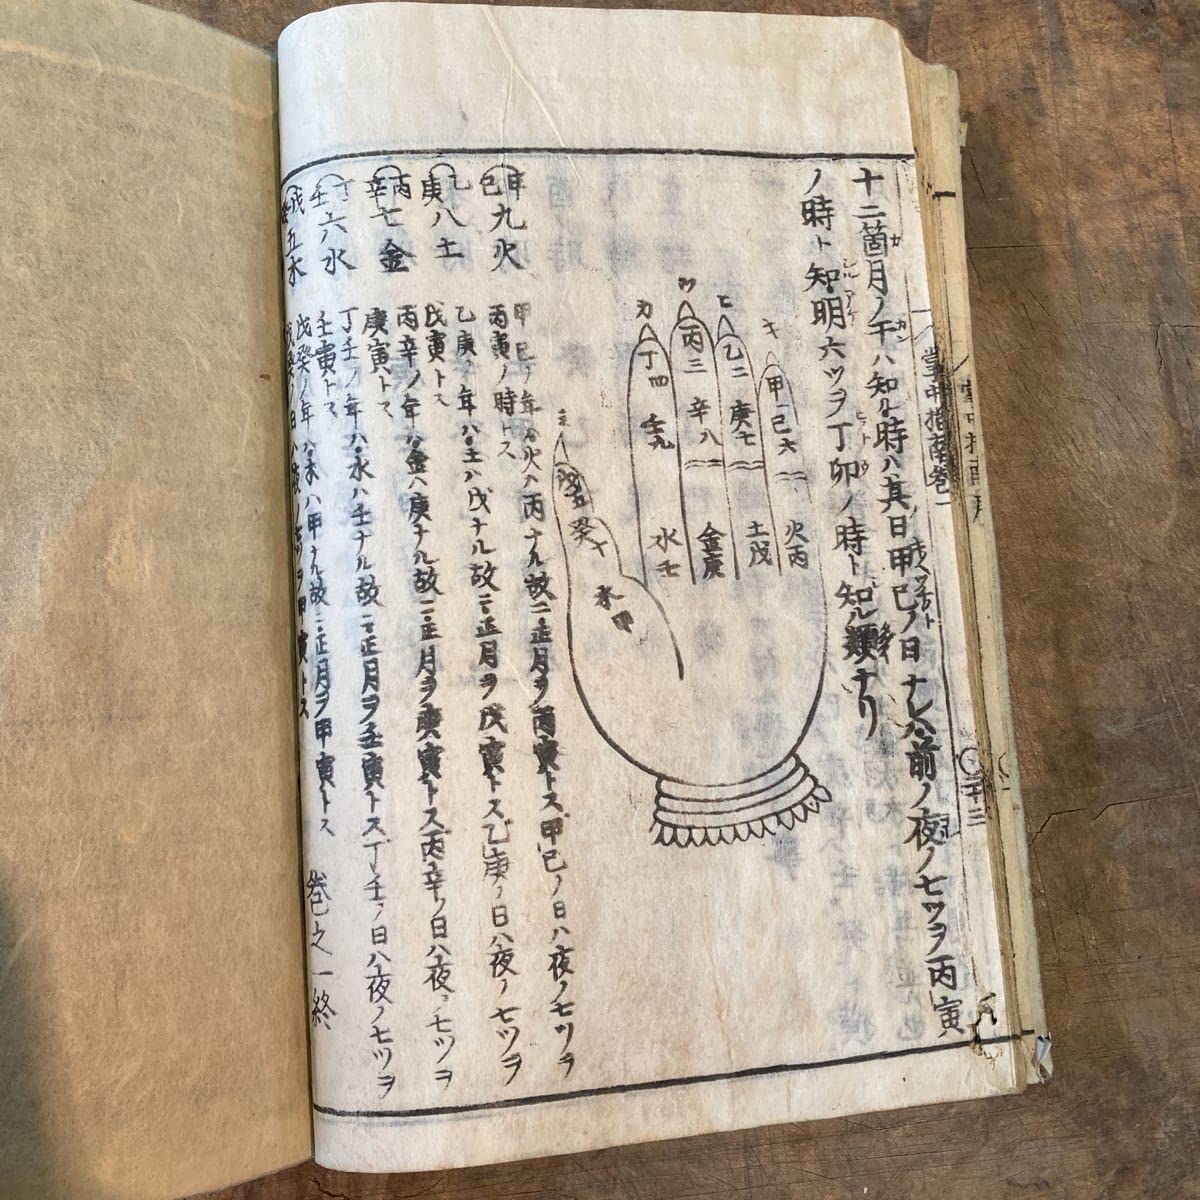 掌中指南巻一
二十三
十二箇月ノ干ハ知ル時ハ其日甲己ノ日ナレハ前ノ夜ノ七ツヲ丙寅
ノ時ト知明六ツヲ丁卯ノ時ト知ル類ナリ
キ
甲一己六
火丙
ヒ
乙二庚七
土戊
ツ
丙三辛八
金庚
カ
丁四壬九
水壬
ミ
戊五癸十
木甲
甲己九火
甲己ノ年ハ火ハ丙ナル故ニ正月ヲ丙寅トス甲己ノ日ハ夜ノ七ツヲ
丙寅ノ時トス
乙庚八土
乙庚ノ年ハ土ハ戊ナル故ニ正月ヲ戊寅トス乙庚ノ日ハ夜ノ七ツヲ
戊寅トス
丙辛七金
丙辛ノ年ハ金ハ庚ナル故ニ正月ヲ庚寅トス丙辛ノ日ハ夜ノ七ツヲ
庚寅トス
丁壬六水
丁壬ノ年ハ水ハ壬ナル故ニ正月ヲ壬寅トス丁壬ノ日ハ夜ノ七ツヲ
壬寅トス
戊癸五木
戊癸ノ年ハ木ハ甲ナル故ニ正月ヲ甲寅トス
戊癸ノ日ハ夜ノ七ツヲ甲寅トス
巻之一終